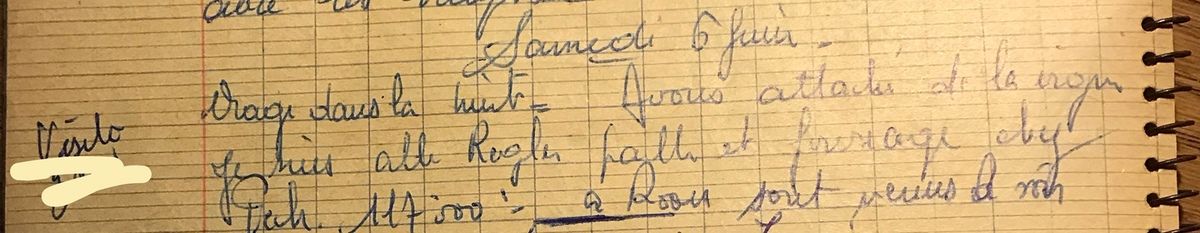 avec les
Samedi 6 Juin -
Orage dans la nuit - Avons attaché de la vigne
Visite
Je suis allé Régler paille et fourrage chez
117 500 - à sont venus à voir